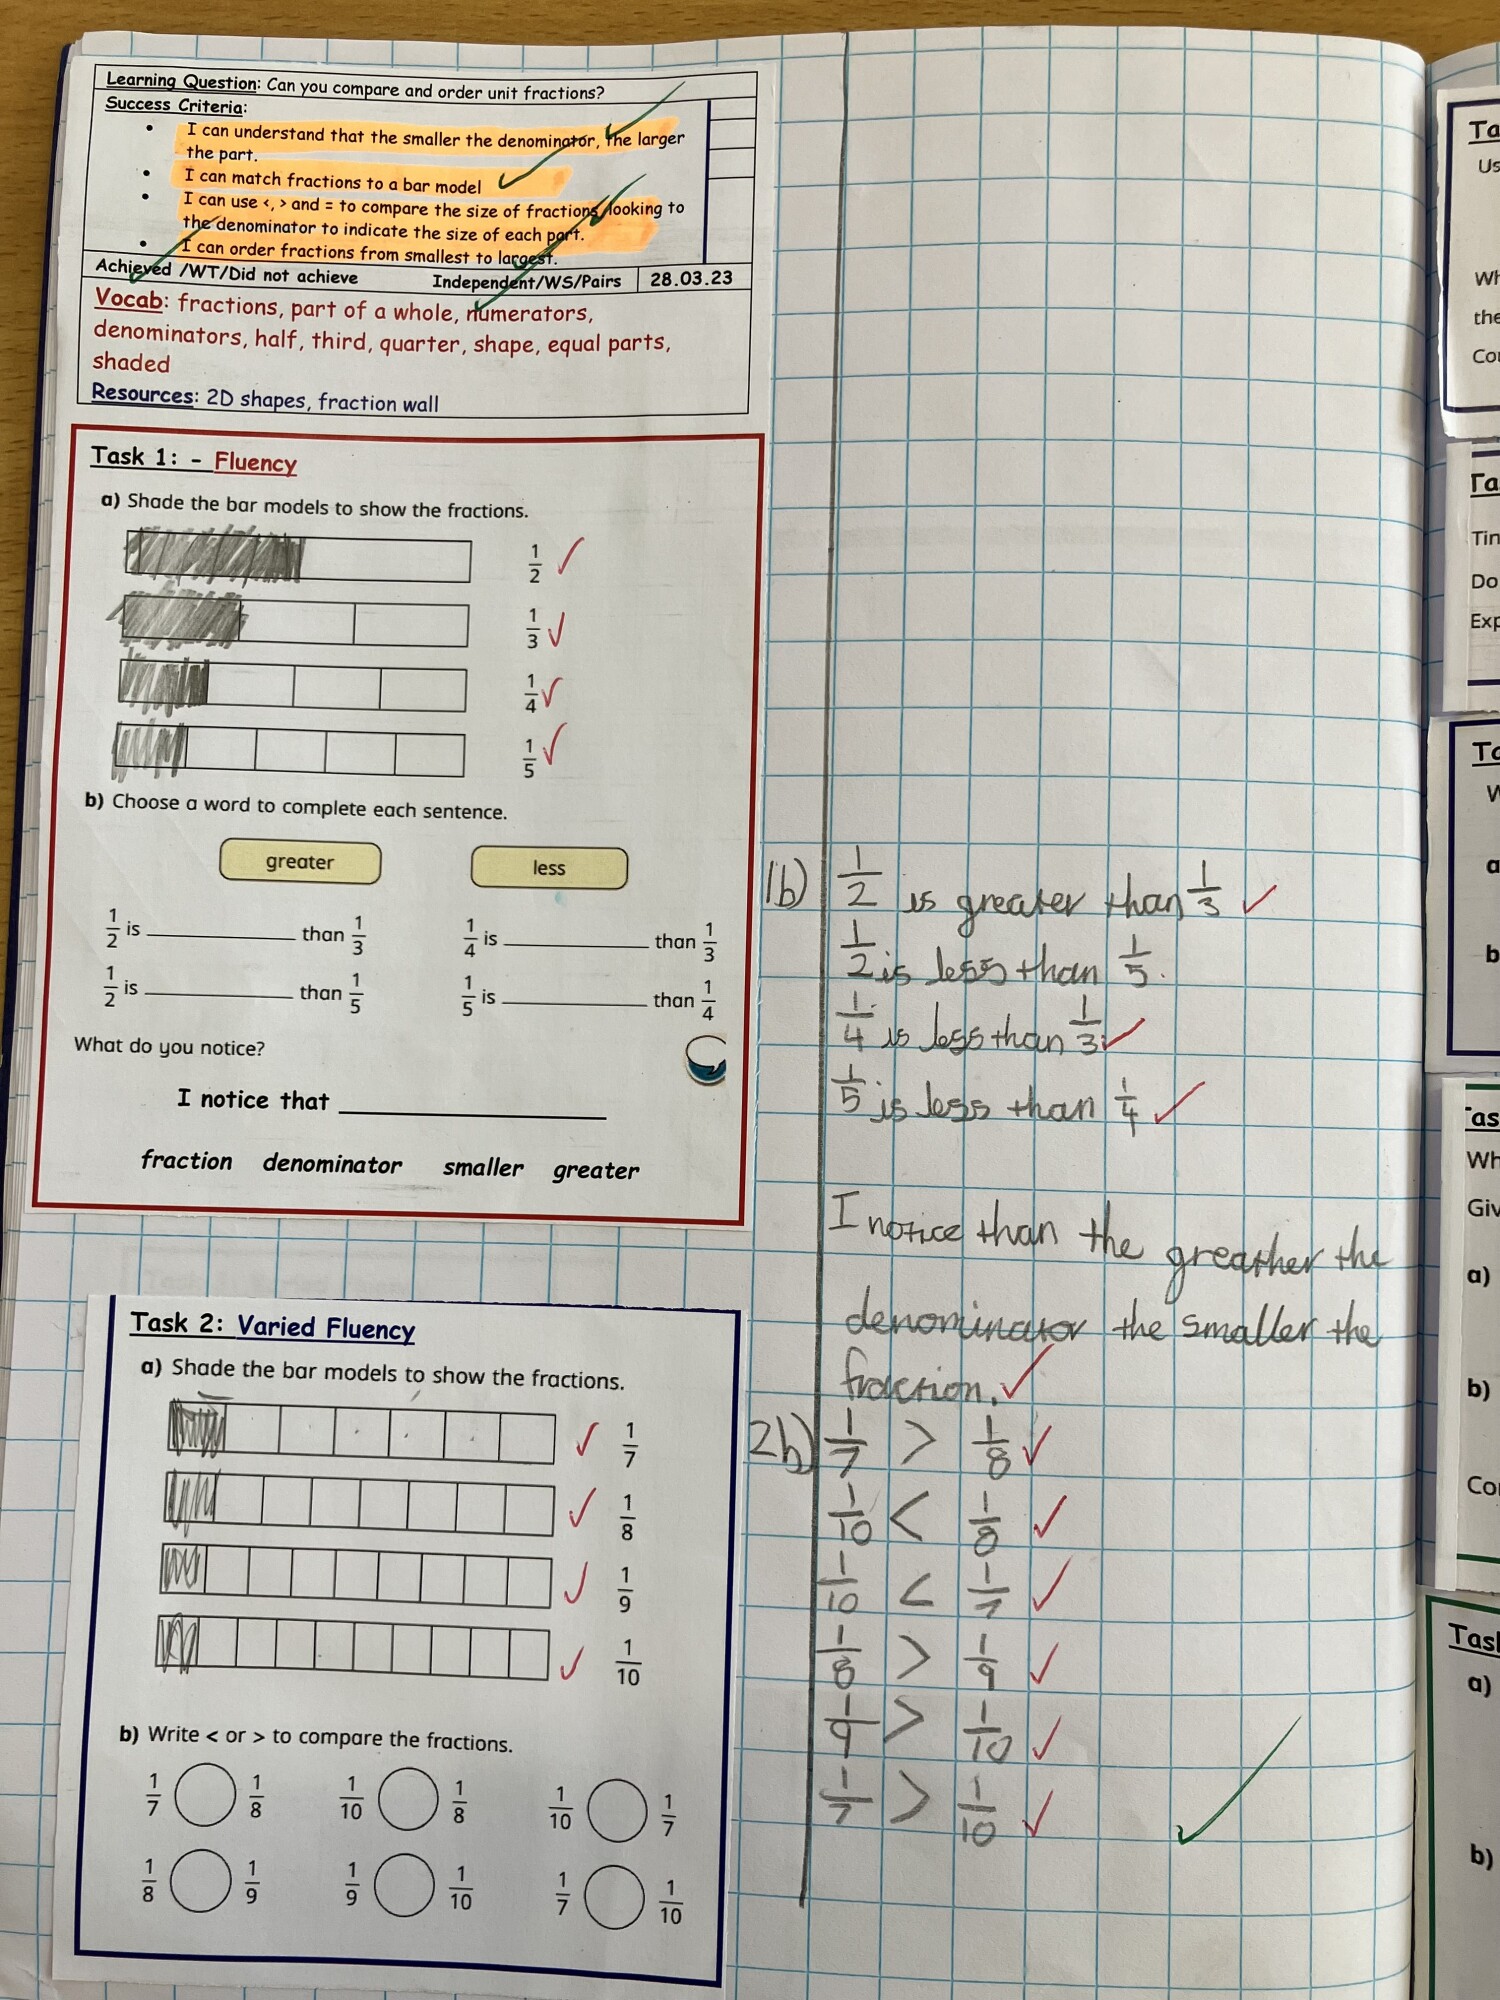 Learning Question: Can you compare and order unit fractions?
Success Criteria:
• I can understand that the smaller the denominator, the larger
the part.
• I can match fractions to a bar model
• I can use <, > and = to compare the size of fractions, looking to
the denominator to indicate the size of each part.
• I can order fractions from smallest to largest.
Achieved /WT/Did not achieve Independent/WS/Pairs 28.03.23
Vocab: fractions, part of a whole, numerators,
denominators, half, third, quarter, shape, equal parts,
shaded
Resources: 2D shapes, fraction wall
Task 1: - Fluency
a) Shade the bar models to show the fractions.
1/2
1/3
1/4
1/5
b) Choose a word to complete each sentence.
greater less
1/2 is ___ than 1/3 1/4 is ___ than 1/3
1/2 is ___ than 1/5 1/5 is ___ than 1/4
What do you notice?
I notice that ___
fraction denominator smaller greater
Task 2: Varied Fluency
a) Shade the bar models to show the fractions.
1/7
1/8
1/9
1/10
b) Write < or > to compare the fractions.
1/7 1/8 1/10 1/8 1/10 1/7
1/8 1/9 1/9 1/10 1/7 1/10
1b) 1/2 is greater than 1/3
1/2 is less than 1/5.
1/4 is less than 1/3
1/5 is less than 1/4
I notice than the greather the
denominator the smaller the
fraction.
2b) 1/7 > 1/8
1/10 < 1/8
1/10 < 1/7
1/8 > 1/9
1/9 > 1/10
1/7 > 1/10
Ta
Us
Wh
the
Co
Ta
Tin
Do
Exp
Ta
W
a
b
Tas
Wh
Giv
a)
b)
Co
Task
a)
b)